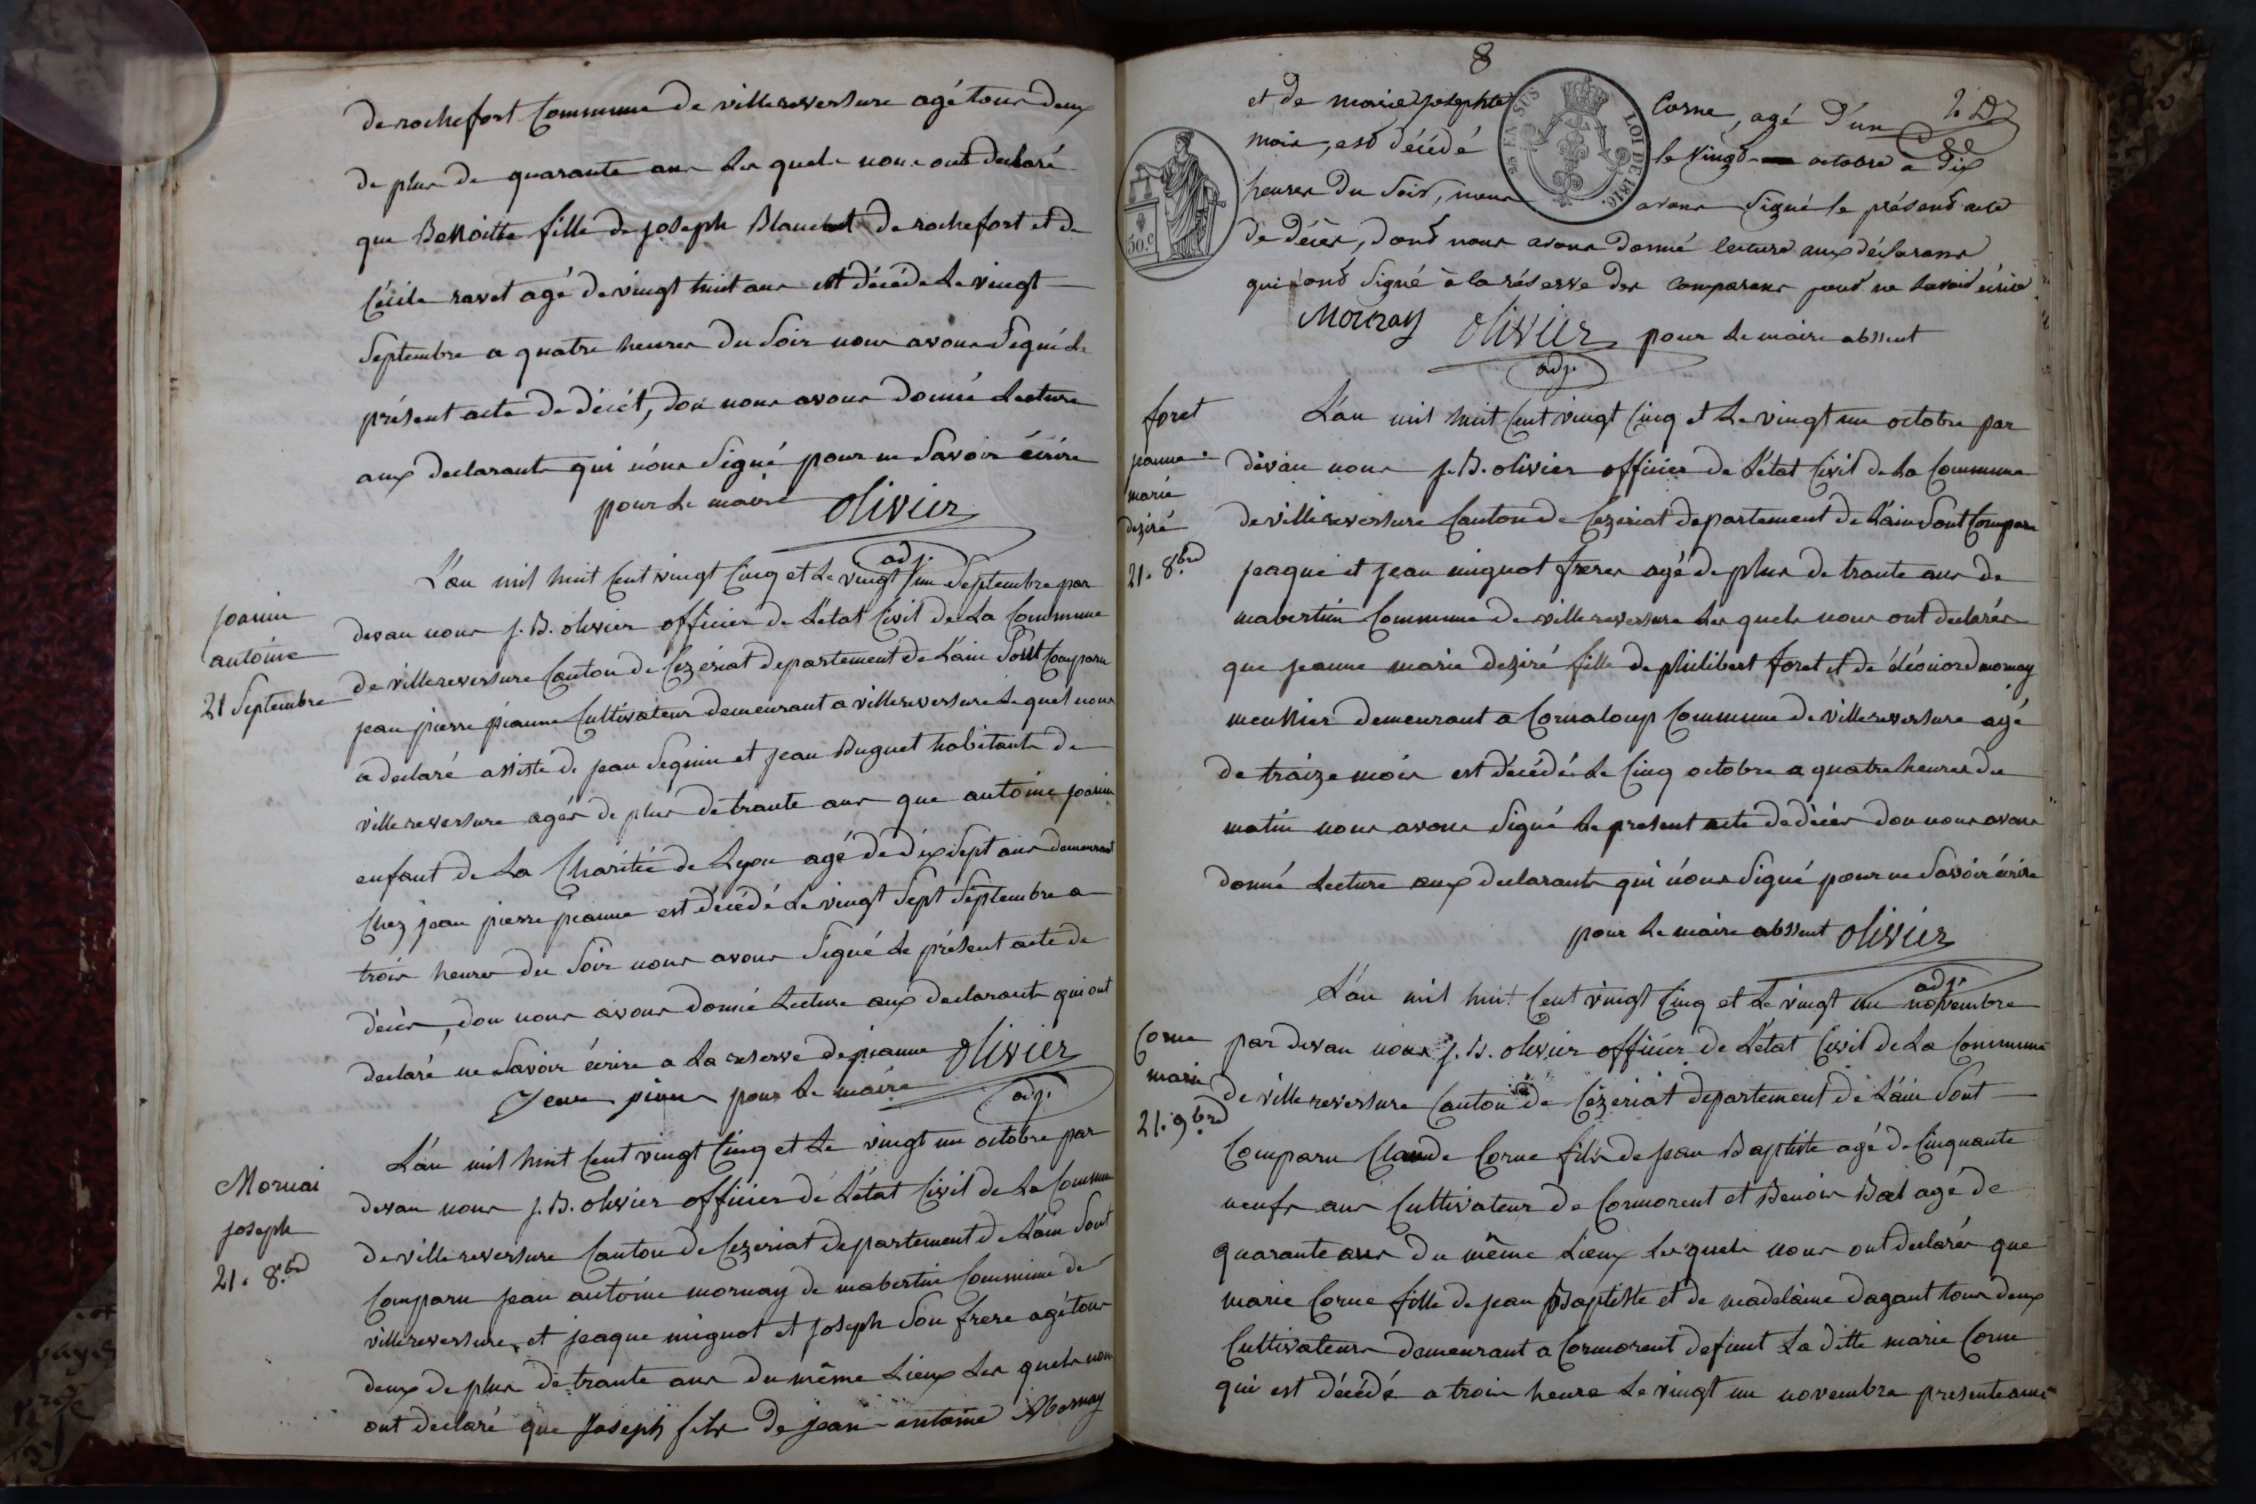 de rochefort Commune de villereversure agé tous deux
de plus de quarante ans Les quels nous ont declaré
que Benoitte fille de joseph Blanchet de rochefort et de
Cécile ravet agé de vingt huit ans est décédé Le vingt
Septembre a quatre heures du Soir nous avons Segné Le
présent acte de décét, dou nous avons donné Lecture
aux declarants qui n'ons Signé pour ne Savoir écrire
pour Le maire olivier
adj.
L'an mil huit Cent vingt Cinq et Le vingt un Septembre par
joanin
antoine
21 Septembre
devan nous j. B. olivier officier de L'état Civil de La Commune
de villereversure Canton de Cezériat departement de L'ain Sont Comparu
jean pierre pianne Cultivateur demeurant a villereversure Le quel nous
a declaré assisté de jean Seguin et jean Buguet habitants de
villereversure agés de plus de trante ans que antoine joanin
enfant de La Charitié de Lyon agé de dix Sept ans demeurant
Chez jean pierre pianne est décédé Le vingt Sept Septembre a
trois heures du Soir nous avons Signé Le présent acte de
décés, dou nous avons donné Lecture aux declarants qui ont
declaré ne Savoir écrire a La reserve de pianne olivier
pour Le maire
adj.
Mornai
joseph
21. 8.bre
L'an mil huit Cent vingt Cinq et Le vingt un octobre par
devan nous j. B. olivier officier de L'état Civil de La Commune
de villereversure Canton de Cezeriat departement de L'ain Sont
Comparu jean antoine mornay de mabertin Commune de
villereversure, et jeaque mignot et joseph Son frere agé tous
deux de plus de trante ans du même Lieux Les quels nous
ont declaré que Joseph fils de jean-antoine Mornay
8
et de marie josephte Corne, agé d'un
mois, est décédé le vingt octobre a dix
heures du Soir, nous avons Signé le présent acte
25 EN SUS
LOI DE 1816
50.c
de décès, dont nous avons donné lecture aux déclarans
qui n'ont Signé à la réserve des comparans pour ne Savoir écrire
Mornay olivier pour Le maire absent
adj.
foret
jeanne
marie
deziré
21. 8.bre
L'an mil huit Cent vingt Cinq et Le vingt un octobre par
devan nous j. B. olivier officier de L'état Civil de La Commune
de villereversure Canton de Cezeriat departement de L'ain Sont Comparu
jeaque et jean mignot freres agé de plus de trante ans de
mabertin Commune de villereversure Les quels nous ont declarés
que jeanne marie deziré fille de philibert foret et de éléonord mornay
meunier demeurant a Cornaloup Commune de villereversure agé
de traize mois est décédé Le Cinq octobre a quatre heures du
matin nous avons Signé Le present acte de décés dou nous avons
donné Lecture aux declarants qui n'ons Signé pour ne Savoir écrire
pour Le maire absent olivier
adj.
L'an mil huit Cent vingt Cinq et Le vingt un novembre
Corne
marie
21. 9bre
par devan nous j. B. olivier officier de L'état Civil de La Commune
de villereversure Canton de Cézeriat departement de L'ain Sont
Comparu Claude Corne fils de jean Baptiste agé de Cinquante
neufs ans Cultivateur de Cormorent et Benois Bal agé de
quarante ans du même Lieux Les quels nous ont declarés que
marie Corne fille de jean Baptiste et de madelaine dagant tous deux
Cultivateurs demeurant a Cormorent defunt La ditte marie Corne
qui est décédé a trois heure Le vingt un novembre presente anné